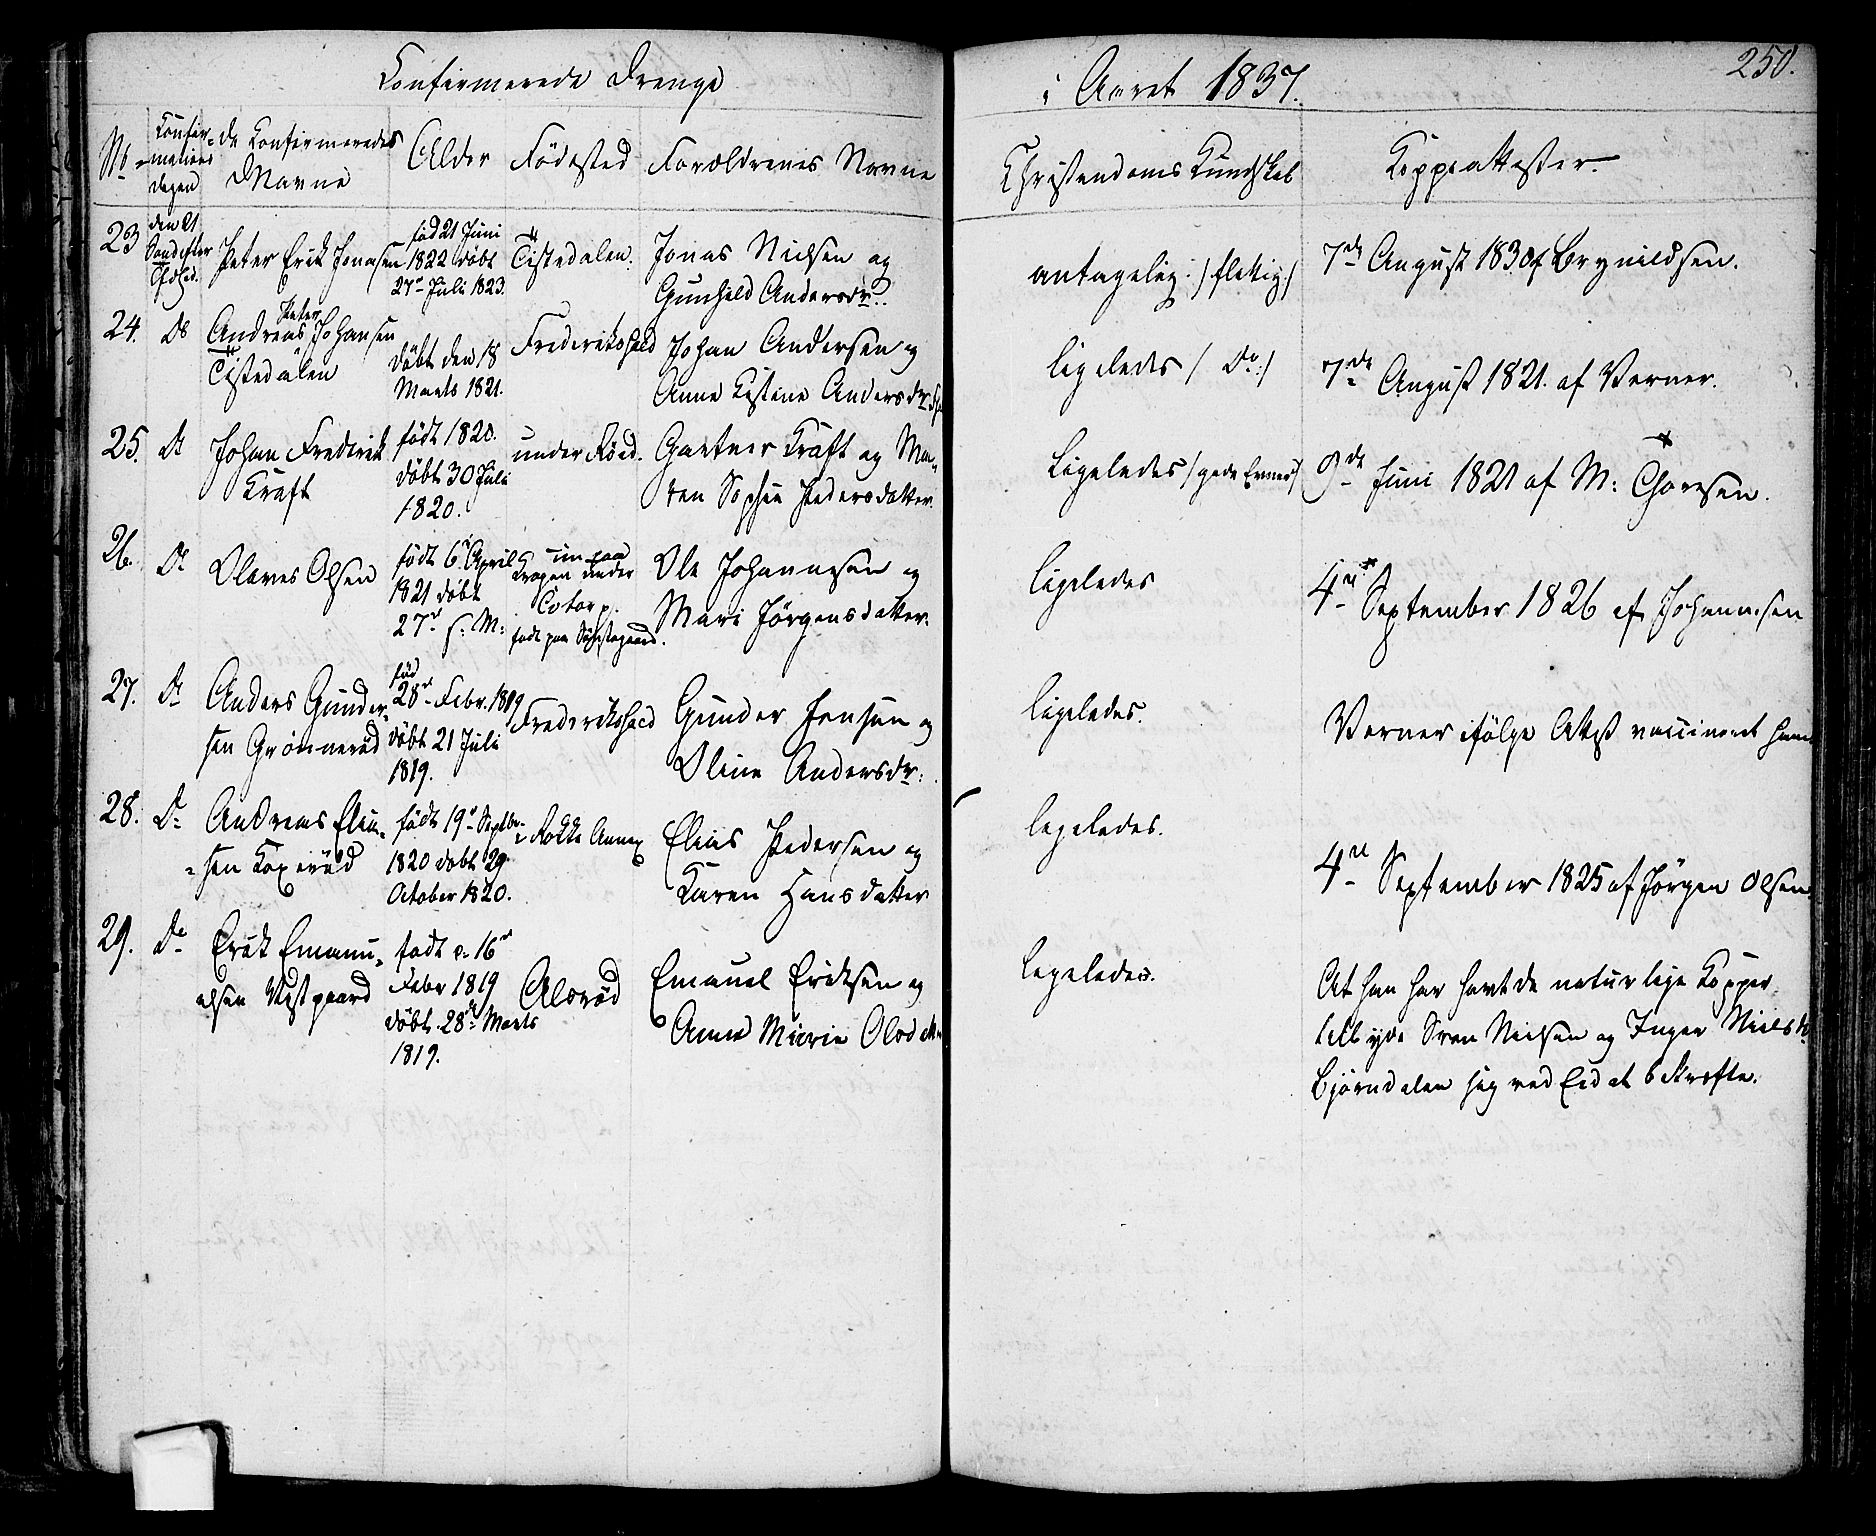 Confirmerede Drenge
i Aaret 1837.
250.
No
Confir-
mations
dagen
de Confirmeredes
Navne
Alder
Födested
Forældrenes Navne
Christendoms Kundskab
Koppeattester.
23
den 21
Sønd efter
Peter Erik Jonasen
fød 21 Juni
1822 döbt
27de Juli 1823.
Tistedalen.
Jonas Nielsen og
Gunhild Andersdr.
antagelig /: flittig :/
7de August 1830 af Brynildsen.
24.
Do
Peter
Andreas Johansen
Tistedalen
döbt den 18
Marts 1821.
Frederikshald
Johan Andersen og
Anne Kistine Andersdr
ligeledes /: Do :/
7de August 1821. af Verner.
25.
Do
Johan Frederik
Kraft
födt 1820.
döbt 30 Juli
1820.
under Röed.
Gartner Kraft og Ma-
ren Sophie Pedersdatter.
Ligeledes / gode Evner /
9de Juni 1821 af M: Thoresen.
26.
Do
Olaves Olsen
födt 6te April
1821 döbt
27de s: M:
Kragen under
födt paa
Ole Johannesen og
Mari Jörgensdatter.
ligeledes
4de September 1826 af Johannesen
27.
Do
Anders Gunder-
sen Grönneröd
fød
28de Febr. 1819
döbt 21 Juli
1819.
Frederikshald
Gunder Jensen og
Oline Andersdr:
ligeledes.
Verner ifölge Attest vaccineret ham
28.
Do
Andreas Elia-
sen Koxeröd
födt 19de Septbr
1820 döbt 29
October 1820.
Rokke Annex
Elias Pedersen og
Karen Hansdatter
ligeledes.
4de September 1825 af Jörgen Olsen.
29.
Do
Erik Emanu-
elsen Vestgaard
födt d. 16de
Febr 1819
döbt. 28de Marts
1819.
Emanuel Eriksen og
Anne Marie Olsdtr
ligeledes.
At han har havt de naturlige Kopper
tilbyde Sven Nielsen og Inger Nielsdr
Björndalen sig ved Eed at bekræfte.